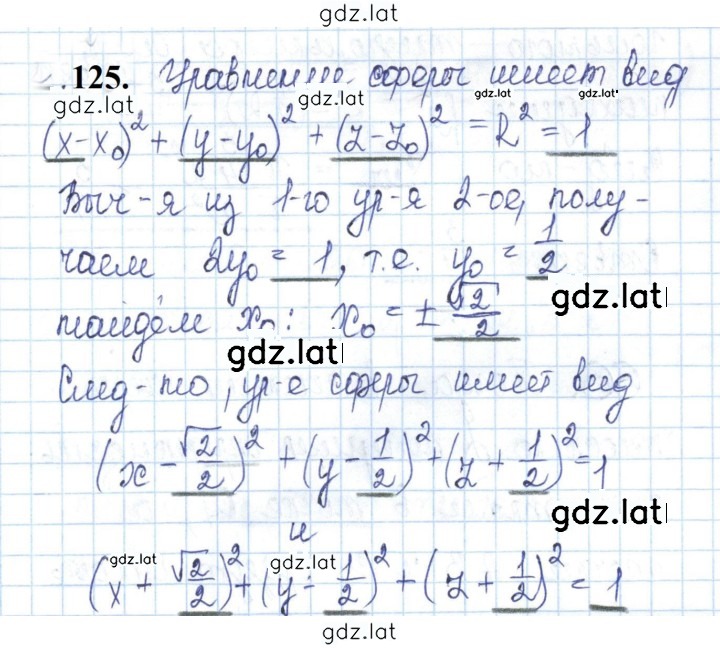 gdz.lat
125. Уравнение сферы имеет вид
gdz.lat gdz.lat gdz.lat
(x-x₀)² + (y-y₀)² + (z-z₀)² = R² = 1
Выч-я из 1-го ур-я 2-ое, полу-
чаем 2y₀ = 1, т.е. y₀ = 1/2
gdz.lat
найдём x₀: x₀ = ± √2/2
gdz.lat
След-но, ур-е сферы имеет вид
(x - √2/2)² + (y - 1/2)² + (z + 1/2)² = 1
gdz.lat
и
gdz.lat gdz.lat
(x + √2/2)² + (y - 1/2)² + (z + 1/2)² = 1
gdz.lat